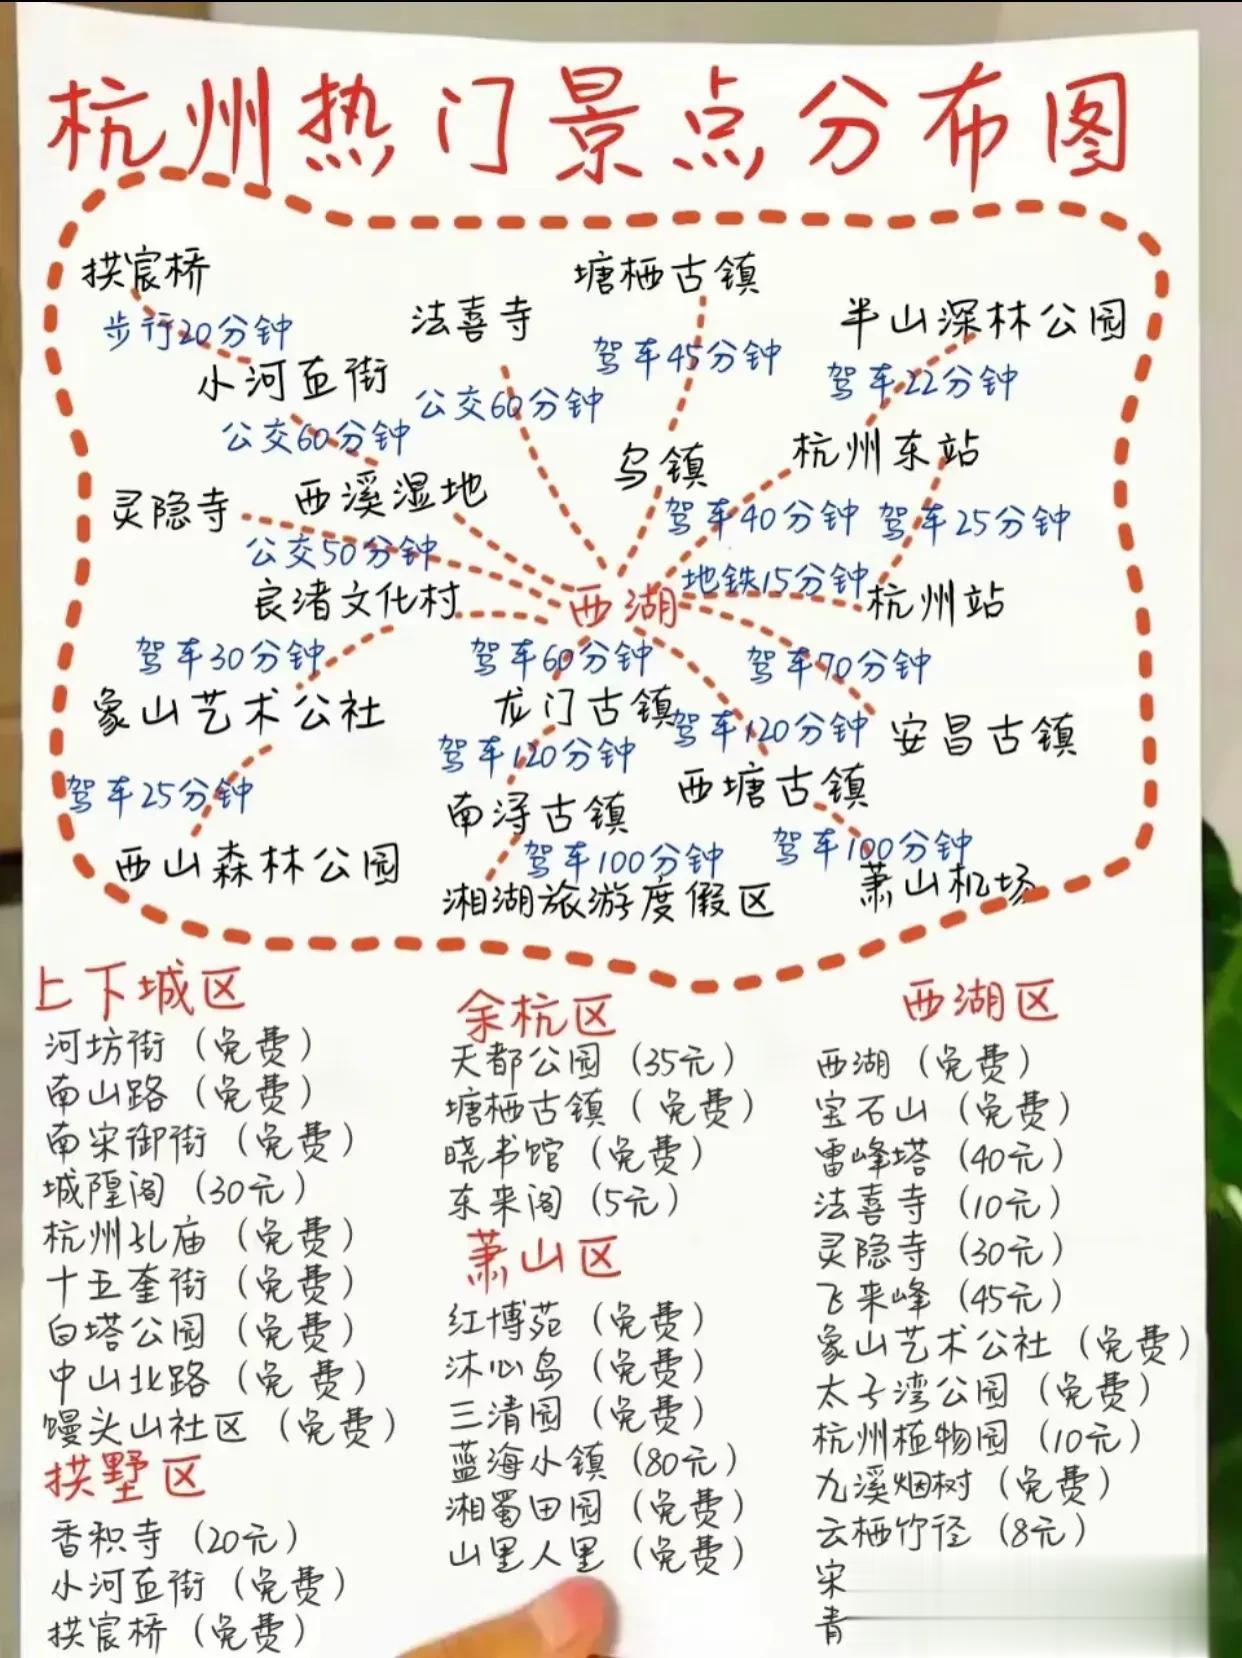 杭州热门景点分布图
拱宸桥
塘栖古镇
法喜寺
半山深林公园
步行20分钟
驾车45分钟
小河直街
驾车22分钟
公交60分钟
公交60分钟
乌镇
杭州东站
灵隐寺
西溪湿地
驾车40分钟
驾车25分钟
公交50分钟
地铁15分钟
良渚文化村
西湖
杭州站
驾车30分钟
驾车60分钟
驾车70分钟
象山艺术公社
龙门古镇
驾车120分钟
安昌古镇
驾车120分钟
驾车25分钟
西塘古镇
南浔古镇
驾车100分钟
驾车100分钟
西山森林公园
湘湖旅游度假区
萧山机场
上下城区
河坊街（免费）
南山路（免费）
南宋御街（免费）
城隍阁（30元）
杭州孔庙（免费）
十五奎街（免费）
白塔公园（免费）
中山北路（免费）
馒头山社区（免费）
拱墅区
香积寺（20元）
小河直街（免费）
拱宸桥（免费）
余杭区
天都公园（35元）
塘栖古镇（免费）
晓书馆（免费）
东来阁（5元）
萧山区
红博苑（免费）
沐心岛（免费）
三清园（免费）
蓝海小镇（80元）
湘蜀田园（免费）
山里人里（免费）
西湖区
西湖（免费）
宝石山（免费）
雷峰塔（40元）
法喜寺（10元）
灵隐寺（30元）
飞来峰（45元）
象山艺术公社（免费）
太子湾公园（免费）
杭州植物园（10元）
九溪烟树（免费）
云栖竹径（8元）
宋
青